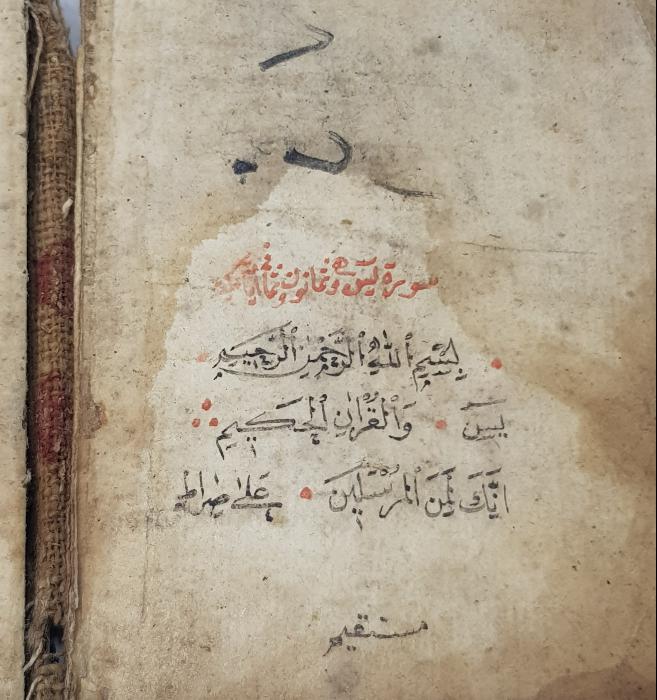 سورة يس وثمانون
بِسْمِ ٱللَّهِ ٱلرَّحْمٰنِ ٱلرَّحِيمِ
يسٓ وَٱلْقُرْاٰنِ ٱلْحَكِيمِ
اِنَّكَ لَمِنَ ٱلْمُرْسَلِينَ عَلٰى صِرَاطٍ
مستقيم